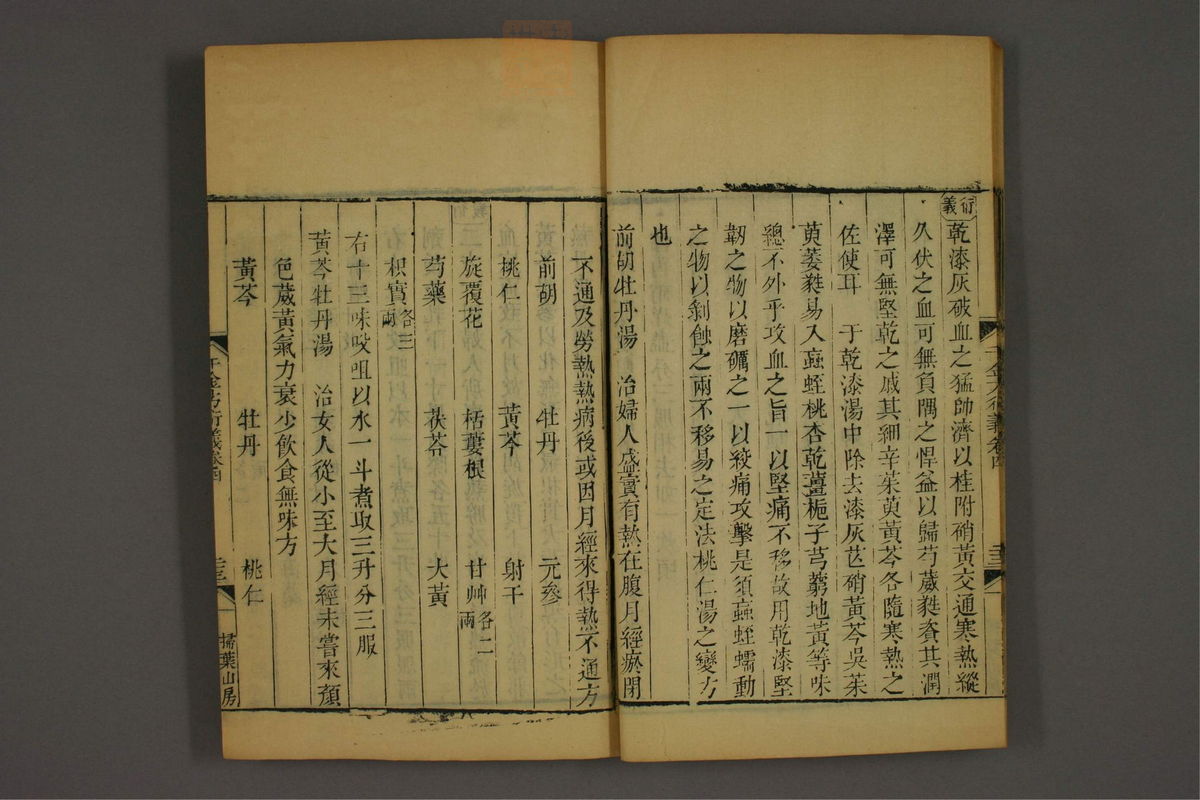 衍義
乾漆灰破血之猛帥濟以桂附硝黃交通寒熱縱
久伏之血可無負隅之悍益以歸芍葳蕤資其潤
澤可無堅乾之戚其細辛茱萸黃芩各隨寒熱之
佐使耳　于乾漆湯中除去漆灰芒硝黃芩吳茱
萸萎蕤易入蝱蛭桃杏乾薑梔子芎藭地黃等味
總不外乎攻血之旨一以堅痛不移故用乾漆堅
韌之物以磨礪之一以絞痛攻擊是須蝱蛭蠕動
之物以剝蝕之兩不移易之定法桃仁湯之變方
也
前胡牡丹湯　治婦人盛實有熱在腹月經瘀閉
不通及勞熱熱病後或因月經來得熱不通方
前胡　牡丹　元參
桃仁　黃芩　射干
旋覆花　栝蔞根　甘艸各二兩
芍藥　茯苓　大黃
枳實各三兩
右十三味㕮咀以水一斗煮取三升分三服
黃芩牡丹湯　治女人從小至大月經未嘗來顏
色葳黃氣力衰少飲食無味方
黃芩　牡丹　桃仁
千金方衍義卷四
掃葉山房